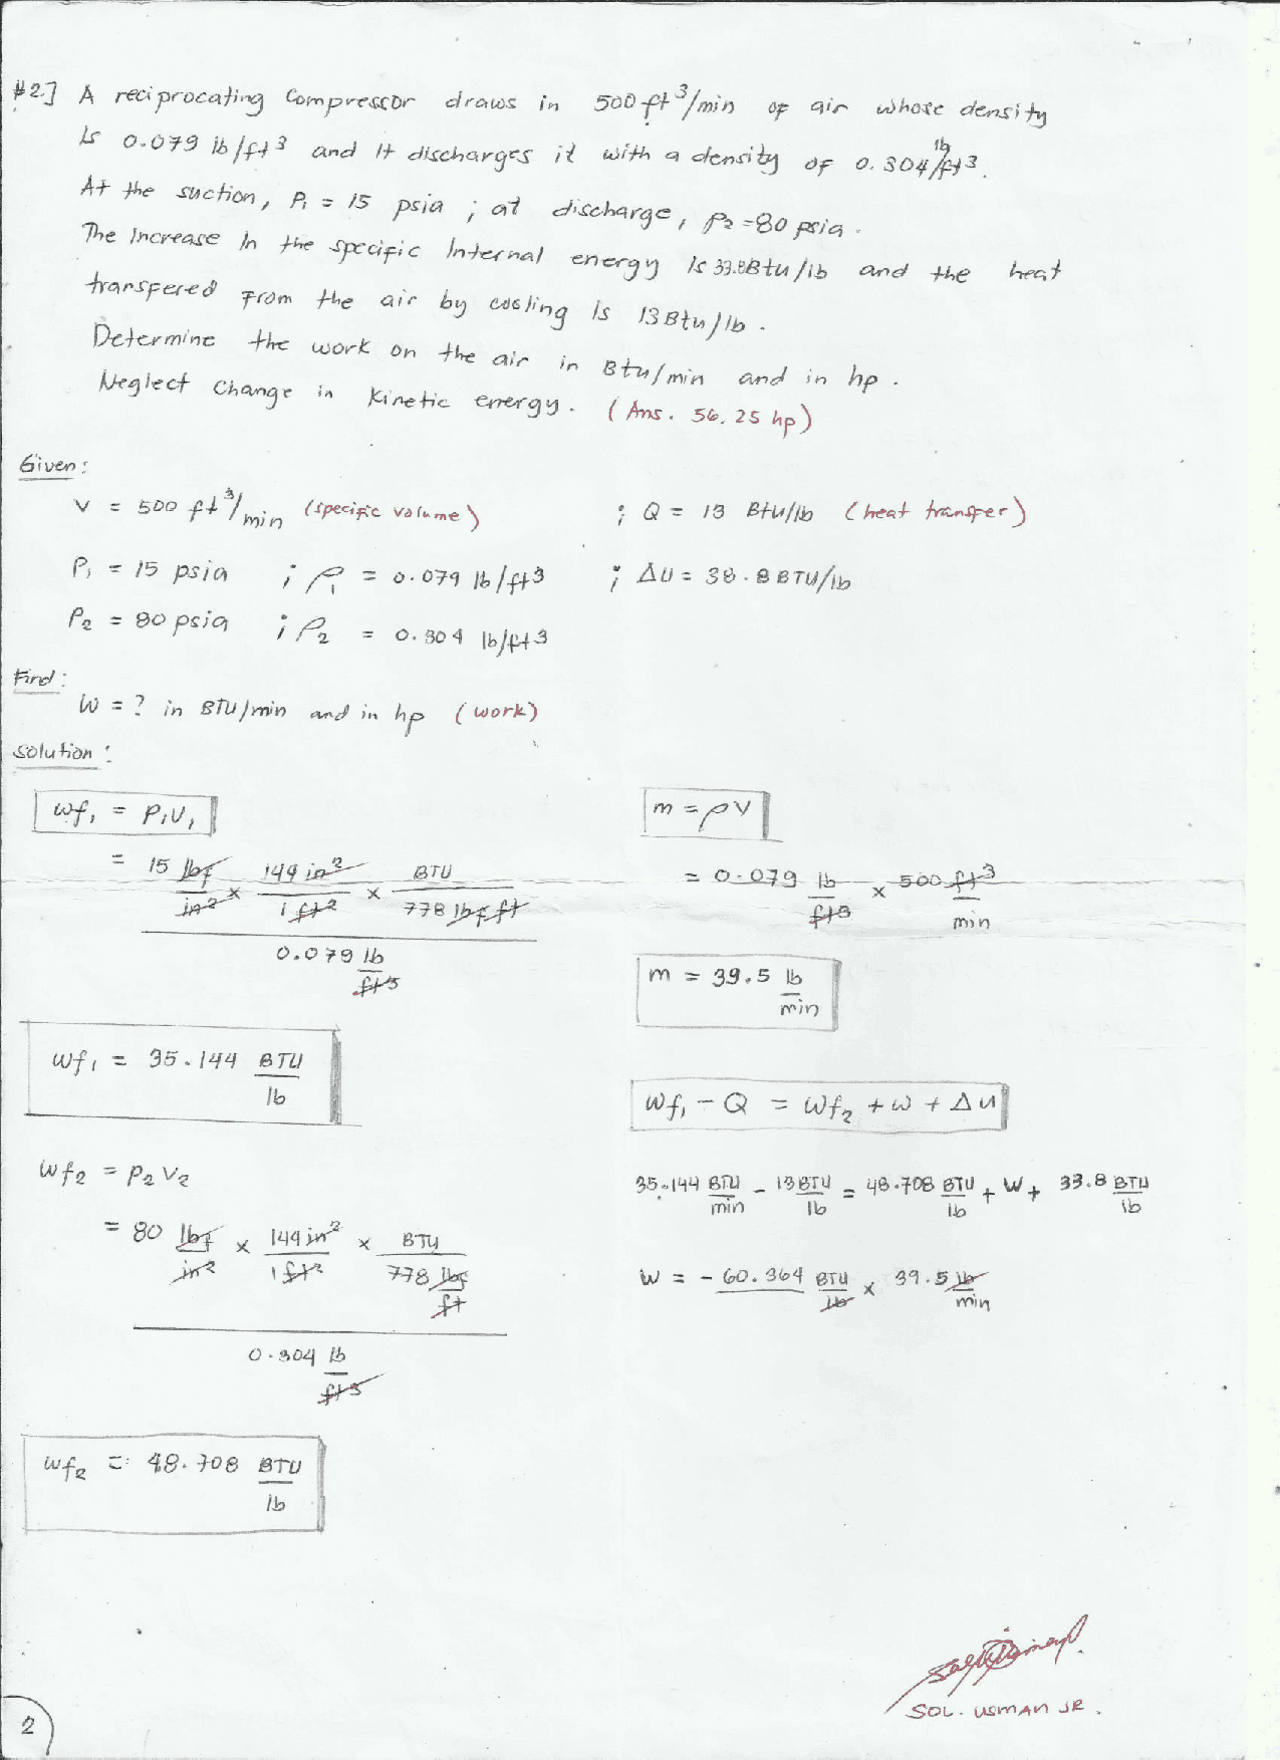 #2.] A reciprocating compressor draws in 500 ft³/min of air whose density
Is 0.079 lb/ft3 and It discharges it with a density of 0.304 lb/ft3.
At the suction, P₁ = 15 psia ; at discharge, P₂ = 80 psia.
The Increase In the specific Internal energy Is 33.8Btu/lb and the heat
transfered from the air by cooling Is 13 Btu/lb.
Determine the work on the air in Btu/min and in hp.
Neglect change in Kinetic energy. (Ans. 56.25 hp)
Given:
V = 500 ft³/min (specific volume) ; Q = 13 Btu/lb (heat transfer)
P₁ = 15 psia ; ρ₁ = 0.079 lb/ft3 ; ΔU = 38.8 BTU/lb
P₂ = 80 psia ; ρ₂ = 0.304 lb/ft3
Find:
W = ? in BTU/min and in hp (work)
Solution:
Wf₁ = P₁V₁
= 15 lbf/in² × 144 in²/1 ft² × BTU/778 lbf ft
0.079 lb/ft3
Wf₁ = 35.144 BTU/lb
Wf₂ = P₂V₂
= 80 lbf/in² × 144 in²/1 ft² × BTU/778 lbf/ft
0.304 lb/ft3
Wf₂ = 48.708 BTU/lb
m = ρV
= 0.079 lb/ft3 × 500 ft3/min
m = 39.5 lb/min
Wf₁ - Q = Wf₂ + W + Δu
35.144 BTU/min - 13 BTU/lb = 48.708 BTU/lb + W + 33.8 BTU/lb
W = - 60.364 BTU/lb × 39.5 lb/min
SOL. USMAN JR.
2